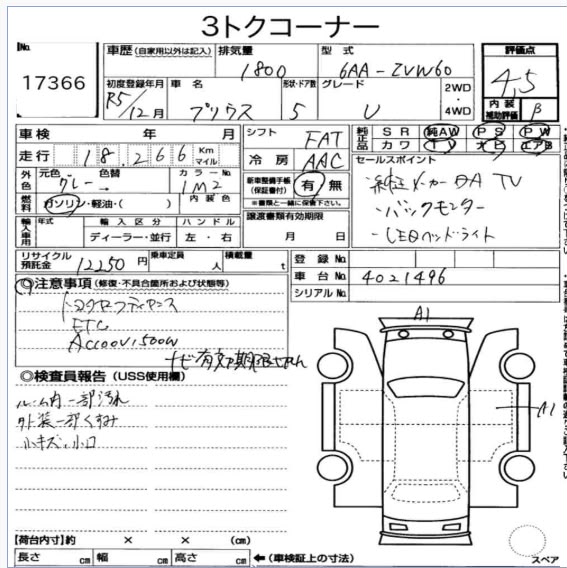 3トクコーナー
No. 17366
車歴(自家用以外は記入) 排気量 1800 型式 6AA-ZVW60 評価点 4.5
初度登録年月 R5/12月 車名 プリウス 形状・ドア数 5 グレード U 2WD・4WD 内装補助評価 β
車検 年 月 シフト FAT 純正品 SR 純AW PS PW
カワ TV ナビ エアB
走行 18,266 Km マイル 冷房 AAC セールスポイント
純正メーカーDA TV
バックモニター
LEDヘッドライト
外色 元色 グレー 色替 カラーNo. 1M2 新車整備手帳(保証書付) 有・無
※書類と一緒に保管下さい。
燃料 ガソリン・軽油・( ) 内装色
輸入車用 年式 輸入区分 ハンドル 譲渡書類有効期限
ディーラー・並行 左・右 月 日
リサイクル預託金 12250円 乗車定員 人 積載量 t
登録No.
車台No. 4021496
シリアルNo.
◎注意事項(修復・不具合箇所および状態等)
トヨタセーフティセンス
ETC
AC100V1500W
ナビ有効期限切れ
◎検査員報告(USS使用欄)
ルーム内一部汚れ
外装一部くすみ
小キズ・小凹
A1
A1
【荷台内寸】約 × × (cm)
長さ cm 幅 cm 高さ cm ←(車検証上の寸法)
スペア